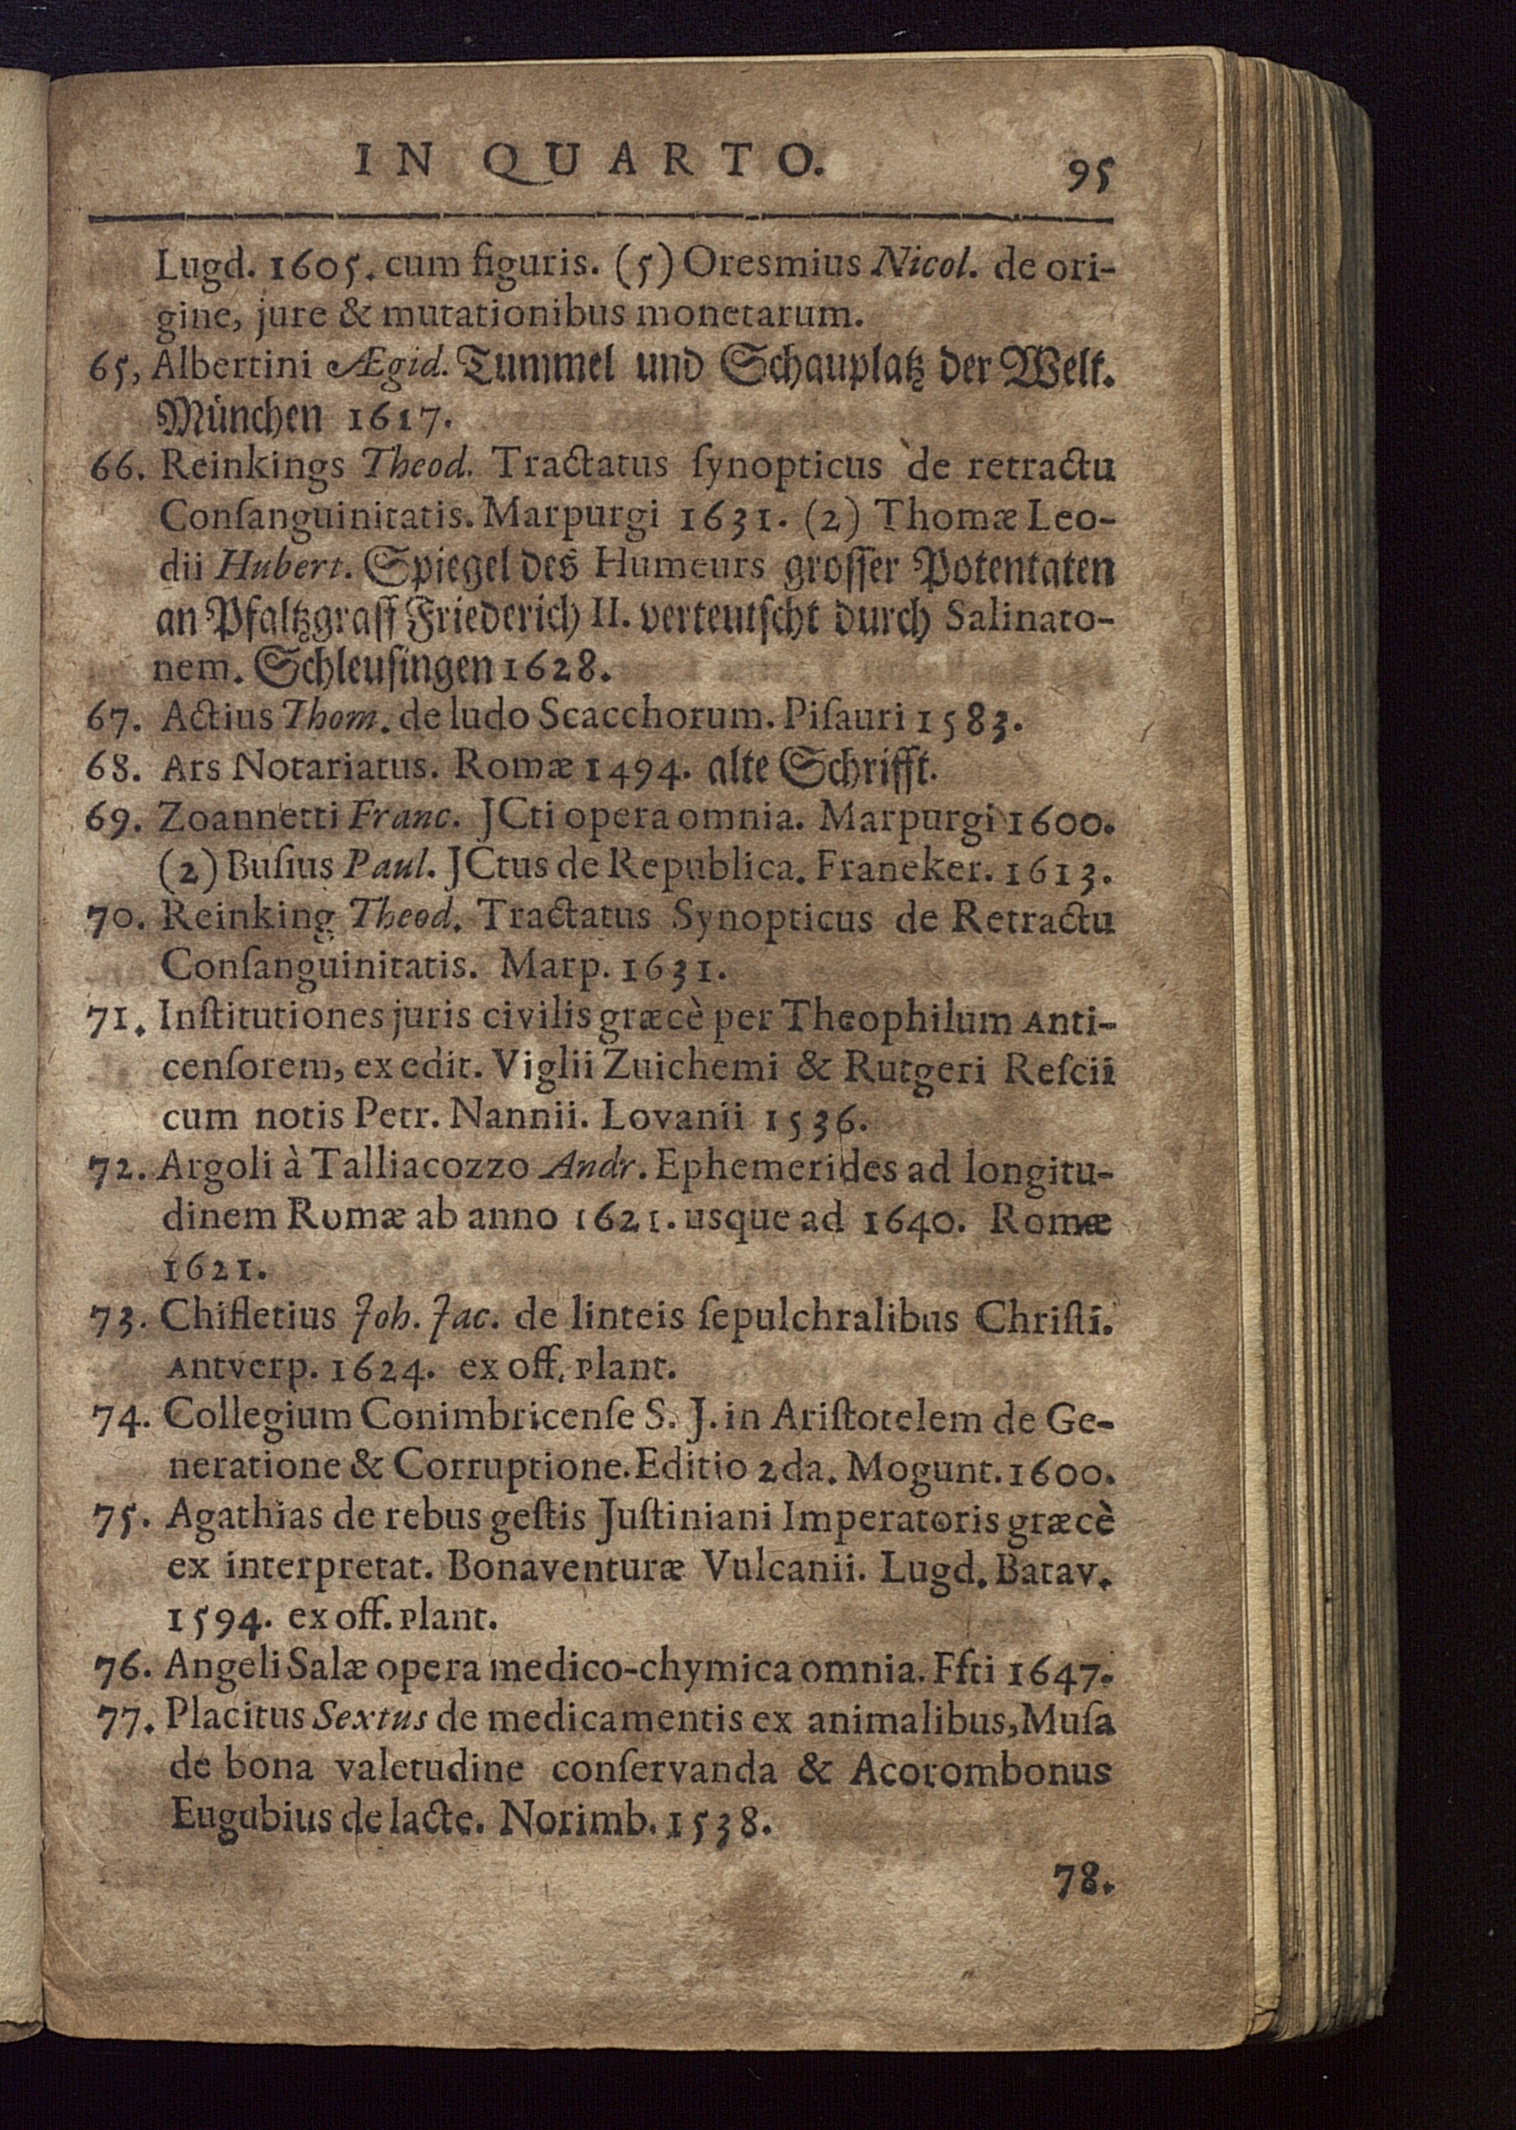 IN QUARTO. 95
Lugd. 1605. cum figuris. (5) Oresmius Nicol. de ori-
gine, jure & mutationibus monetarum.
65, Albertini Ægid. Tummel und Schauplatz der Welt.
München 1617.
66. Reinkings Theod. Tractatus ſynopticus de retractu
Conſanguinitatis. Marpurgi 1631. (2) Thomæ Leo-
dii Hubert. Spiegel des Humeurs groſſer Potentaten
an Pfaltzgraff Friederich II. verteutſcht durch Salinato-
nem. Schleuſingen 1628.
67. Actius Thom. de ludo Scacchorum. Piſauri 1583.
68. Ars Notariatus. Romæ 1494. alte Schrifft.
69. Zoannetti Franc. JCti opera omnia. Marpurgi 1600.
(2) Buſius Paul. JCtus de Republica. Franeker. 1613.
70. Reinking Theod. Tractatus Synopticus de Retractu
Conſanguinitatis. Marp. 1631.
71. Inſtitutiones juris civilis græcè per Theophilum Anti-
cenſorem, ex edit. Viglii Zuichemi & Rutgeri Reſcii
cum notis Petr. Nannii. Lovanii 1536.
72. Argoli à Talliacozzo Andr. Ephemerides ad longitu-
dinem Romæ ab anno 1621. usque ad 1640. Romæ
1621.
73. Chifletius Joh. Jac. de linteis ſepulchralibus Chriſti.
Antverp. 1624. ex off. Plant.
74. Collegium Conimbricenſe S. J. in Ariſtotelem de Ge-
neratione & Corruptione. Editio 2da. Mogunt. 1600.
75. Agathias de rebus geſtis Juſtiniani Imperatoris græcè
ex interpretat. Bonaventuræ Vulcanii. Lugd. Batav.
1594. ex off. Plant.
76. Angeli Salæ opera medico-chymica omnia. Ffti 1647.
77. Placitus Sextus de medicamentis ex animalibus, Muſa
de bona valetudine conſervanda & Acorombonus
Eugubius de lacte. Norimb. 1538.
78.